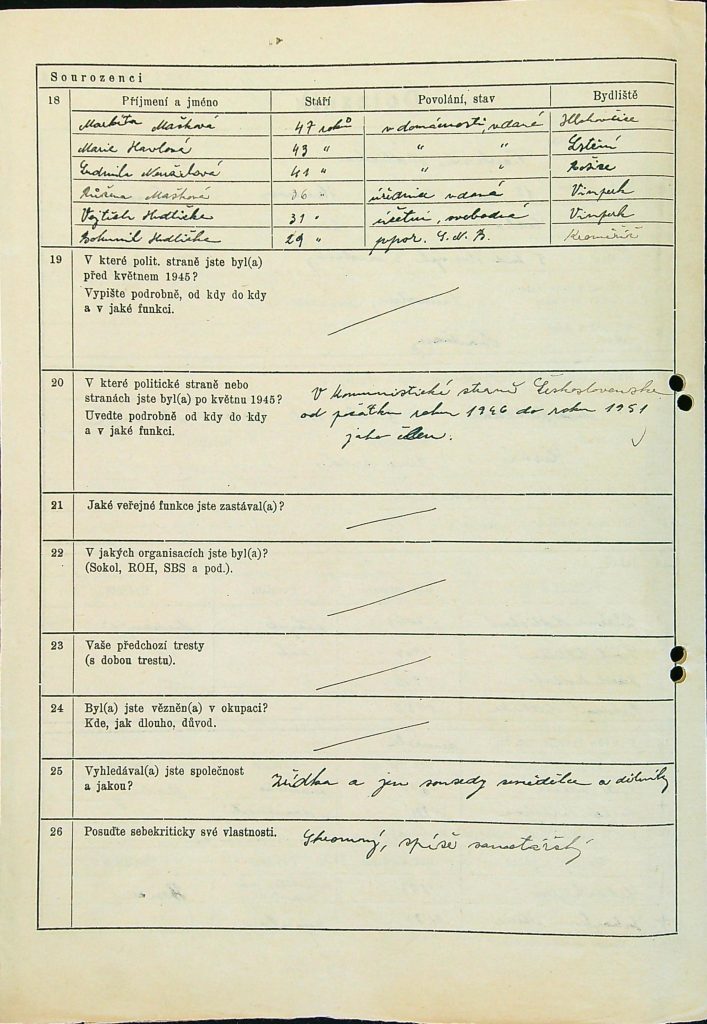 Sourozenci
18 Příjmení a jméno Stáří Povolání, stav Bydliště
Mašková 47 roků v domácnosti, vdaná
Marie Havlová 43 " " "
Ludmila 41 " " "
Růžena Mašková 36 " úřednice vdaná Vimperk
Vojtěch Hrdlička 31 " účetní, Vimperk
Bohumil Hrdlička 29 " ppor. S.N.B. Kroměříž
19 V které polit. straně jste byl(a)
před květnem 1945?
Vypište podrobně, od kdy do kdy
a v jaké funkci.
20 V které politické straně nebo
stranách jste byl(a) po květnu 1945?
Uveďte podrobně od kdy do kdy
a v jaké funkci.
V Komunistické straně Československa
od počátku roku 1946 do roku 1951
jako člen.
21 Jaké veřejné funkce jste zastával(a)?
22 V jakých organisacích jste byl(a)?
(Sokol, ROH, SBS a pod.).
23 Vaše předchozí tresty
(s dobou trestu).
24 Byl(a) jste vězněn(a) v okupaci?
Kde, jak dlouho, důvod.
25 Vyhledával(a) jste společnost
a jakou?
Zřídka a jen sousedy zemědělce a dělníky
26 Posuďte sebekriticky své vlastnosti.
Skromný, spíše samotářský